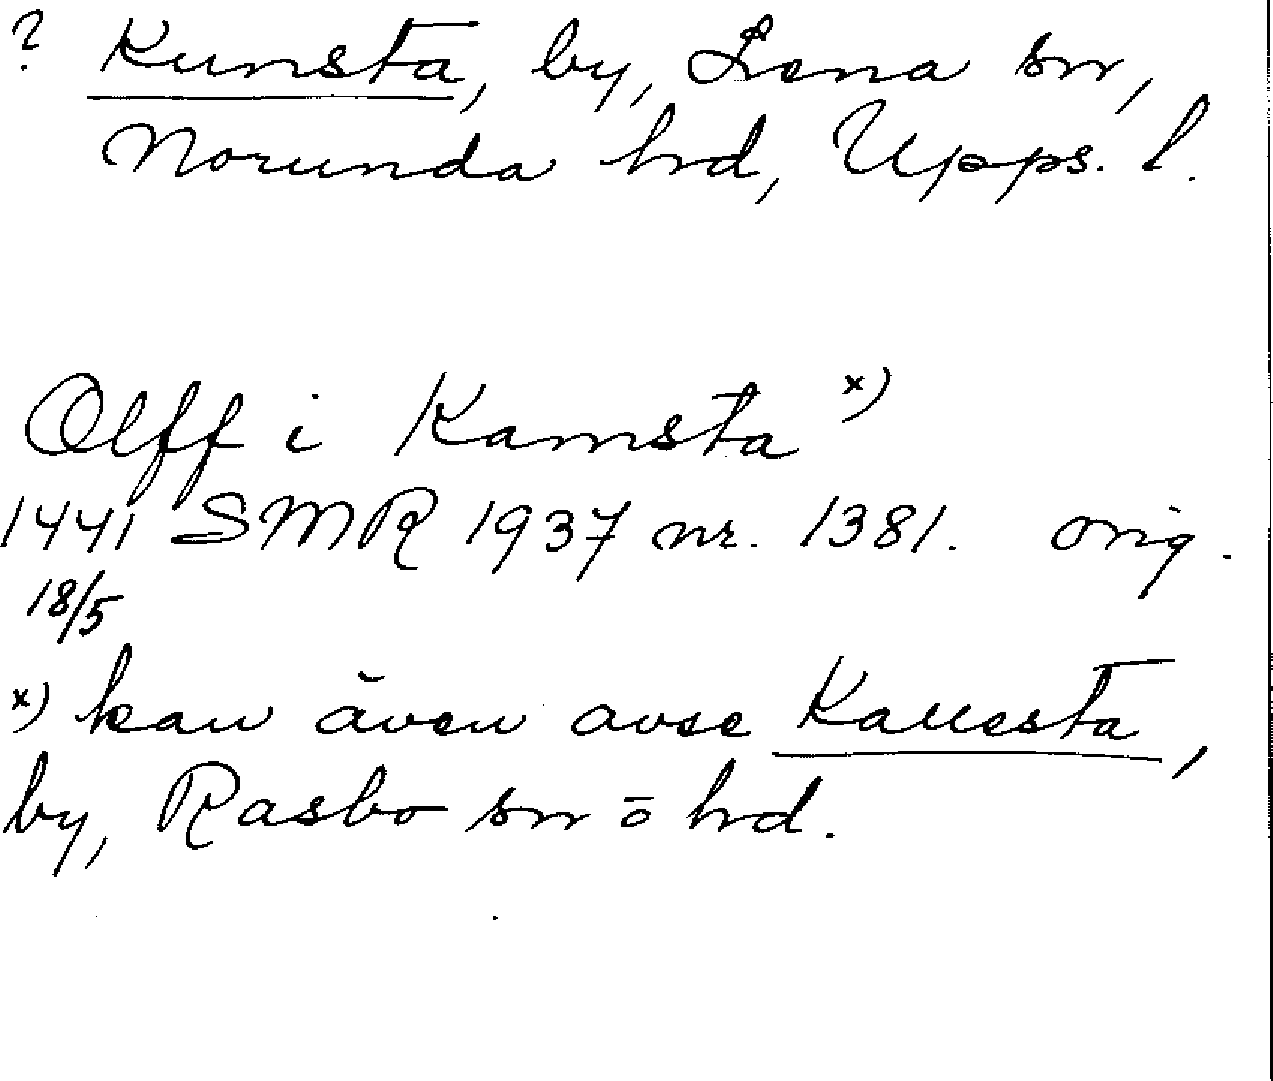 ? Kumsta, by, Lena sn,
Norunda hrd, Upps. l.
Olff i Kamsta x)
1441 SMR 1937 nr. 1381. orig.
18/5
x) kan även avse Kallesta,
by, Rasbo sn o hrd.